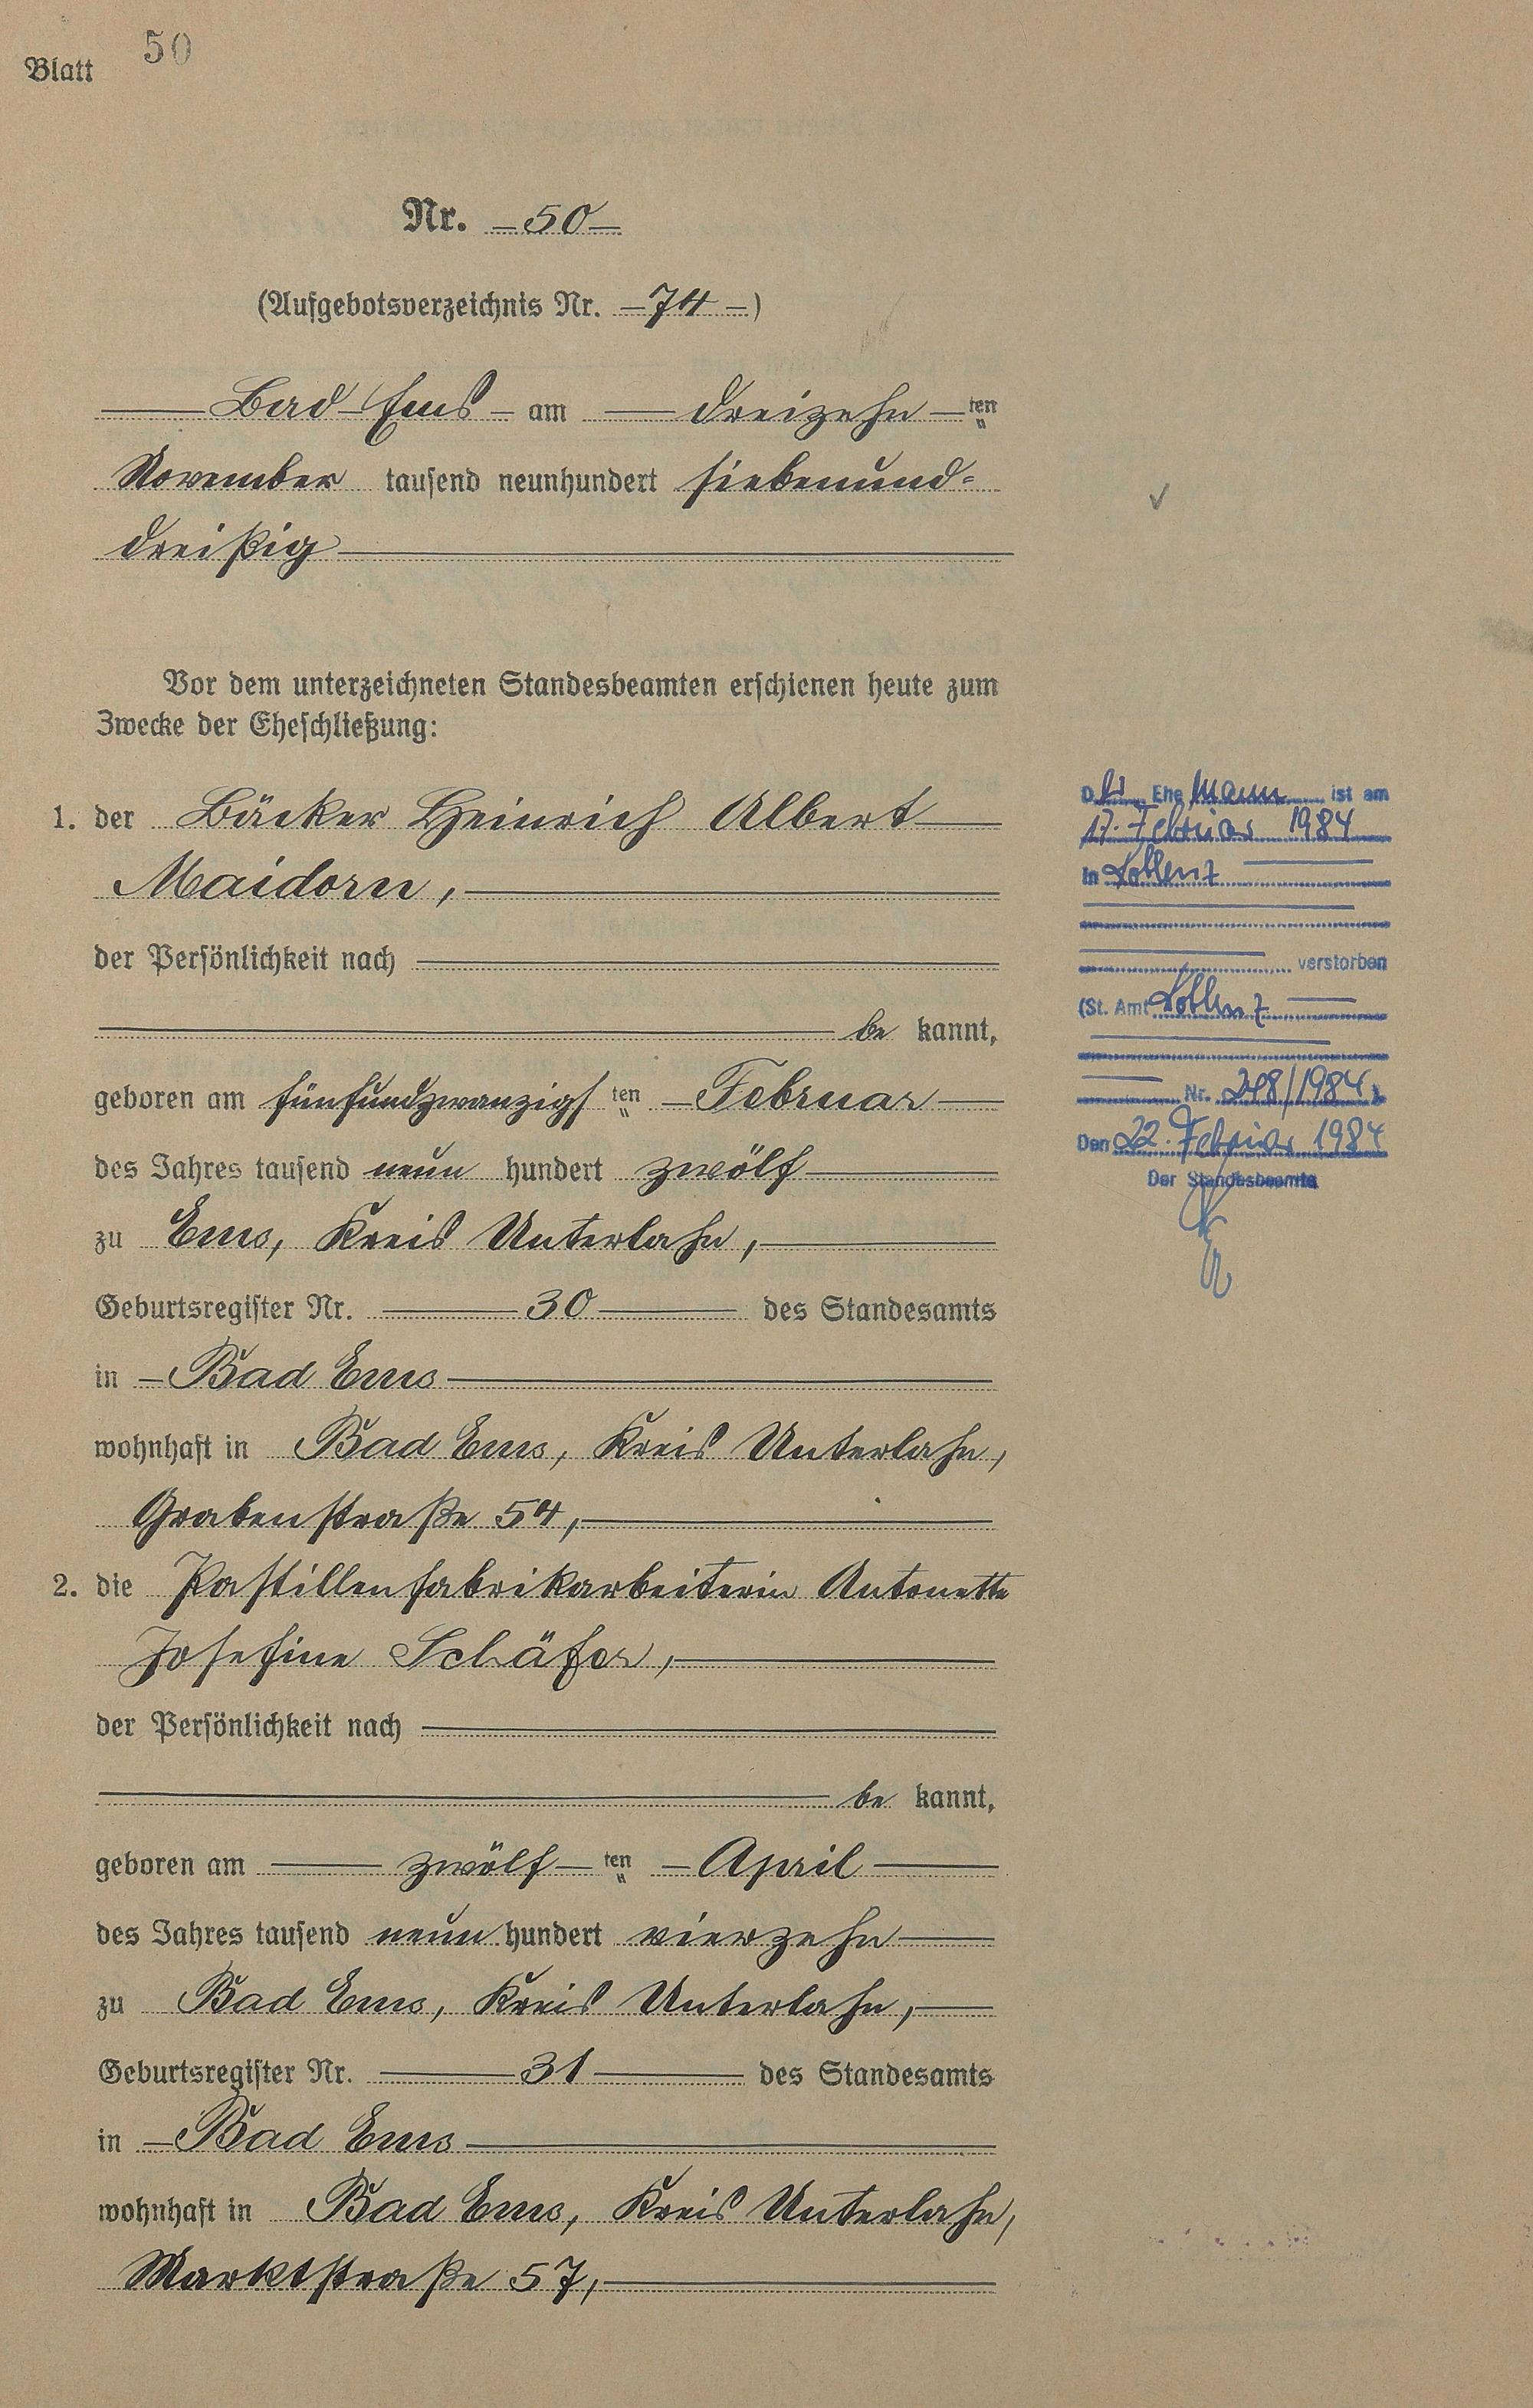 Blatt 50
Nr. 50
(Aufgebotsverzeichnis Nr. 74)
Bad Ems am dreizehn ten
November tausend neunhundert siebenund=
dreißig
Vor dem unterzeichneten Standesbeamten erschienen heute zum
Zwecke der Eheschließung:
1. der Bäcker Heinrich Albert
Maidorn,
der Persönlichkeit nach
be kannt,
geboren am fünfundzwanzigs ten Februar
des Jahres tausend neun hundert zwölf
zu Ems, Kreis Unterlahn,
Geburtsregister Nr. 30 des Standesamts
in Bad Ems
wohnhaft in Bad Ems, Kreis Unterlahn,
Grabenstraße 54,
2. die Pastillenfabrikarbeiterin Antonette
Josefine Schäfer,
der Persönlichkeit nach
be kannt,
geboren am zwölf ten April
des Jahres tausend neun hundert vierzehn
zu Bad Ems, Kreis Unterlahn,
Geburtsregister Nr. 31 des Standesamts
in Bad Ems
wohnhaft in Bad Ems, Kreis Unterlahn,
Marktstraße 57,
Der Ehemann ist am
17. Februar 1984
in Koblenz
verstorben
(St. Amt Koblenz
Nr. 248/1984)
Den 22. Februar 1984
Der Standesbeamte